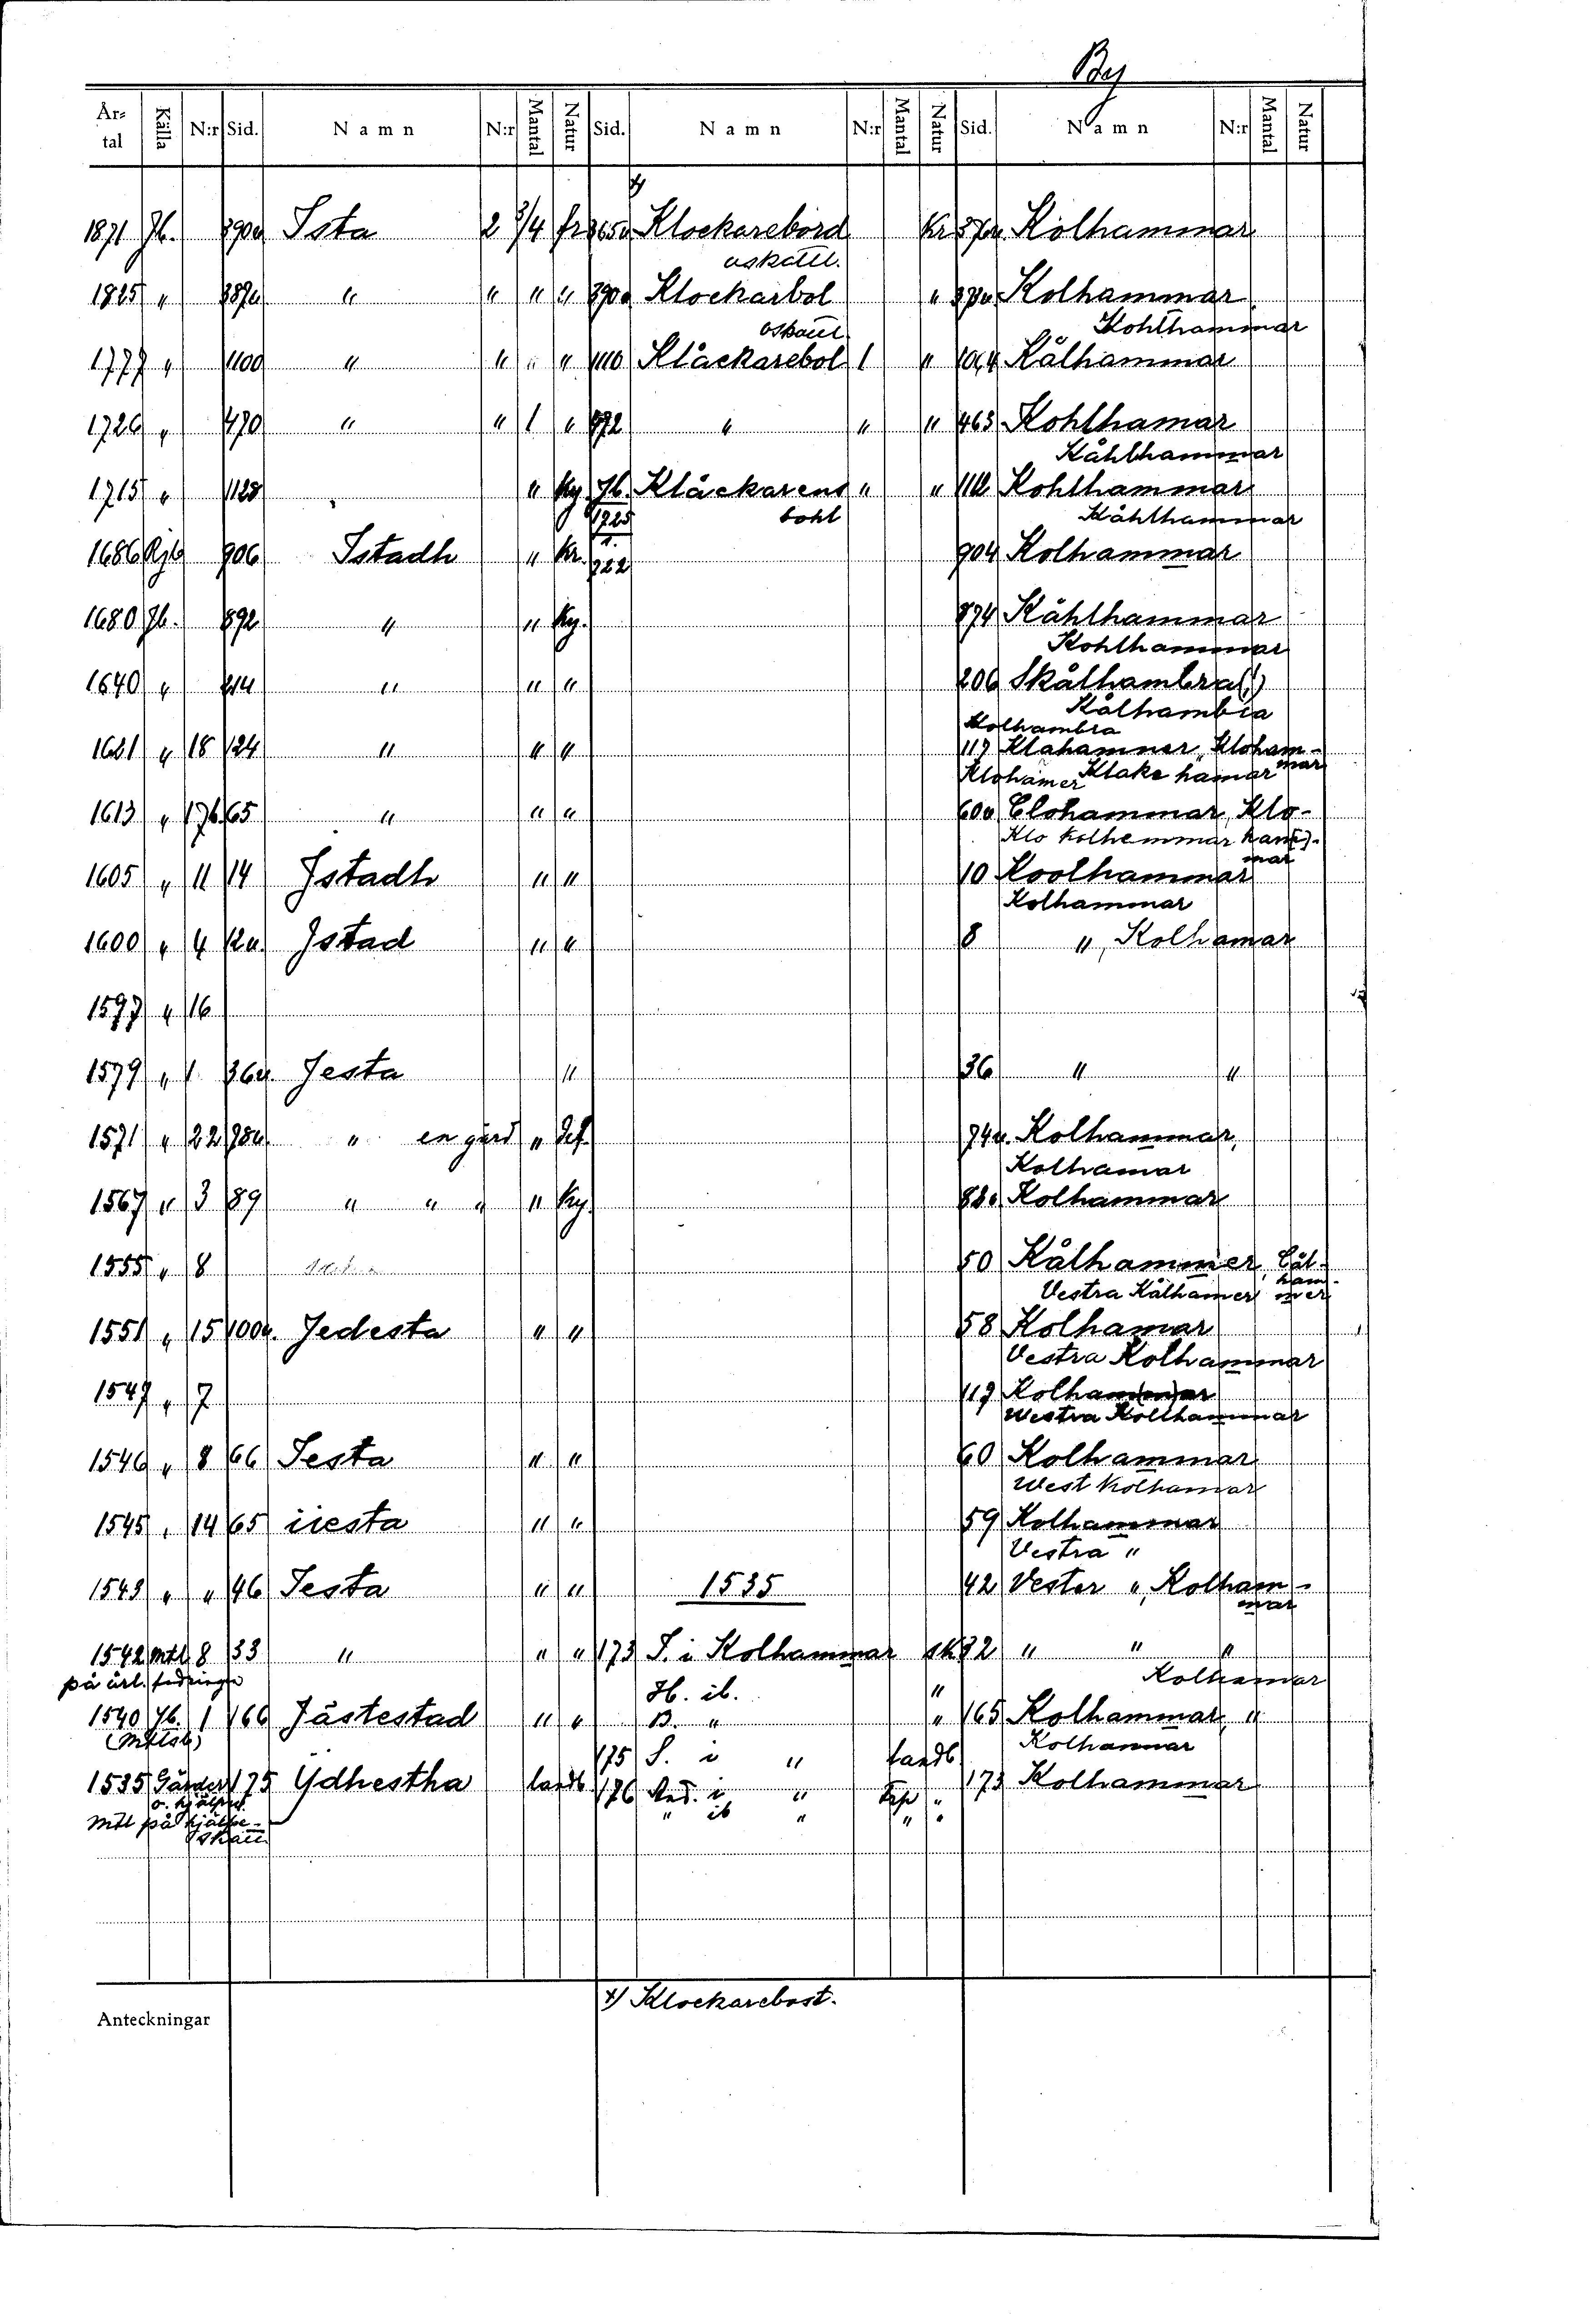 By
År-tal Källa N:r Sid. Namn N:r Mantal Natur Sid. Namn N:r Mantal Natur Sid. Namn N:r Mantal Natur
1871 Jb. 390a Ista 2 3/4 fr 365a Klockarebord Kr Kolhammar
oskattl.
1825 " " " " " 390a Klockarbol " Kolhammar
oskattl. Kohlhammar
1777 " 1100 " " " " 1110 Klåckarebol 1 " 1064 Kålhammar
1726 " 470 " " 1 " 472 " " " 463 Kohlhamar
Kåhlhammar
1715 " 1128 " Ky Jb. Klåckarens " " 1112 Kohlhammar
1725 bohl Kåhlhammar
1686 Rjb 906 Istadh " Kr. 722 904 Kolhammar
1680 Jb. 892 " " Ky. 874 Kåhlhammar
Kohlhammar
1640 " 214 " " " 206 Skålhambra(!)
Kålhambra
Kolhambra
1621 " 18 124 " " " 117 Klahammer, Kloham-
mar
Klohamer Klake hamar
1613 " 17b 65 " " " 60a Clohammar, Klo-
Klo kolhemmar ham-
mar
1605 " 11 14 Jstadh " " 10 Koolhammar
Kolhammar
1600 " 4 12a Jstad " " 8 ", Kolhamar
1597 " 16
1579 " 1 36a Jesta " 36 " "
1571 " 22 78a " en gård " 74a Kolhammar,
Kolhamar
1567 " 3 89 " " " " Ky. 88a Kolhammar
1555 " 8 50 Kålhammer, Cål-
ham-
Vestra Kålhamer mer
1551 " 15 100a. Jedesta " " 58 Kolhamar
Vestra Kolhammar
1547 " 7 117 Kolham(m)ar
Westra Kollhammar
1546 " 8 66 Iesta " " 60 Kolhammar
West Kolhamar
1545 " 14 65 iiesta " " 59 Kolhammar
Vestra "
1543 " " 46 Iesta " " 1535 42 Vester ", Kolham-
mar
1542 Mtl 8 33 " " " 173 S. i Kolhammar sk 32 " " "
på årl. Kolhamar
H. ib. "
1540 Jb. 1 166 Jästestad " " B. " " 165 Kolhammar, "
(Mtlsb) Kolhammar
175 S. i " landb
1535 Gärder 175 Ydhestha landb. 176 And. i " " 173 Kolhammar
o. hjälpsk. " ib " " "
Mtl på hjälpe-
skatt
Anteckningar
x) Klockarebost.